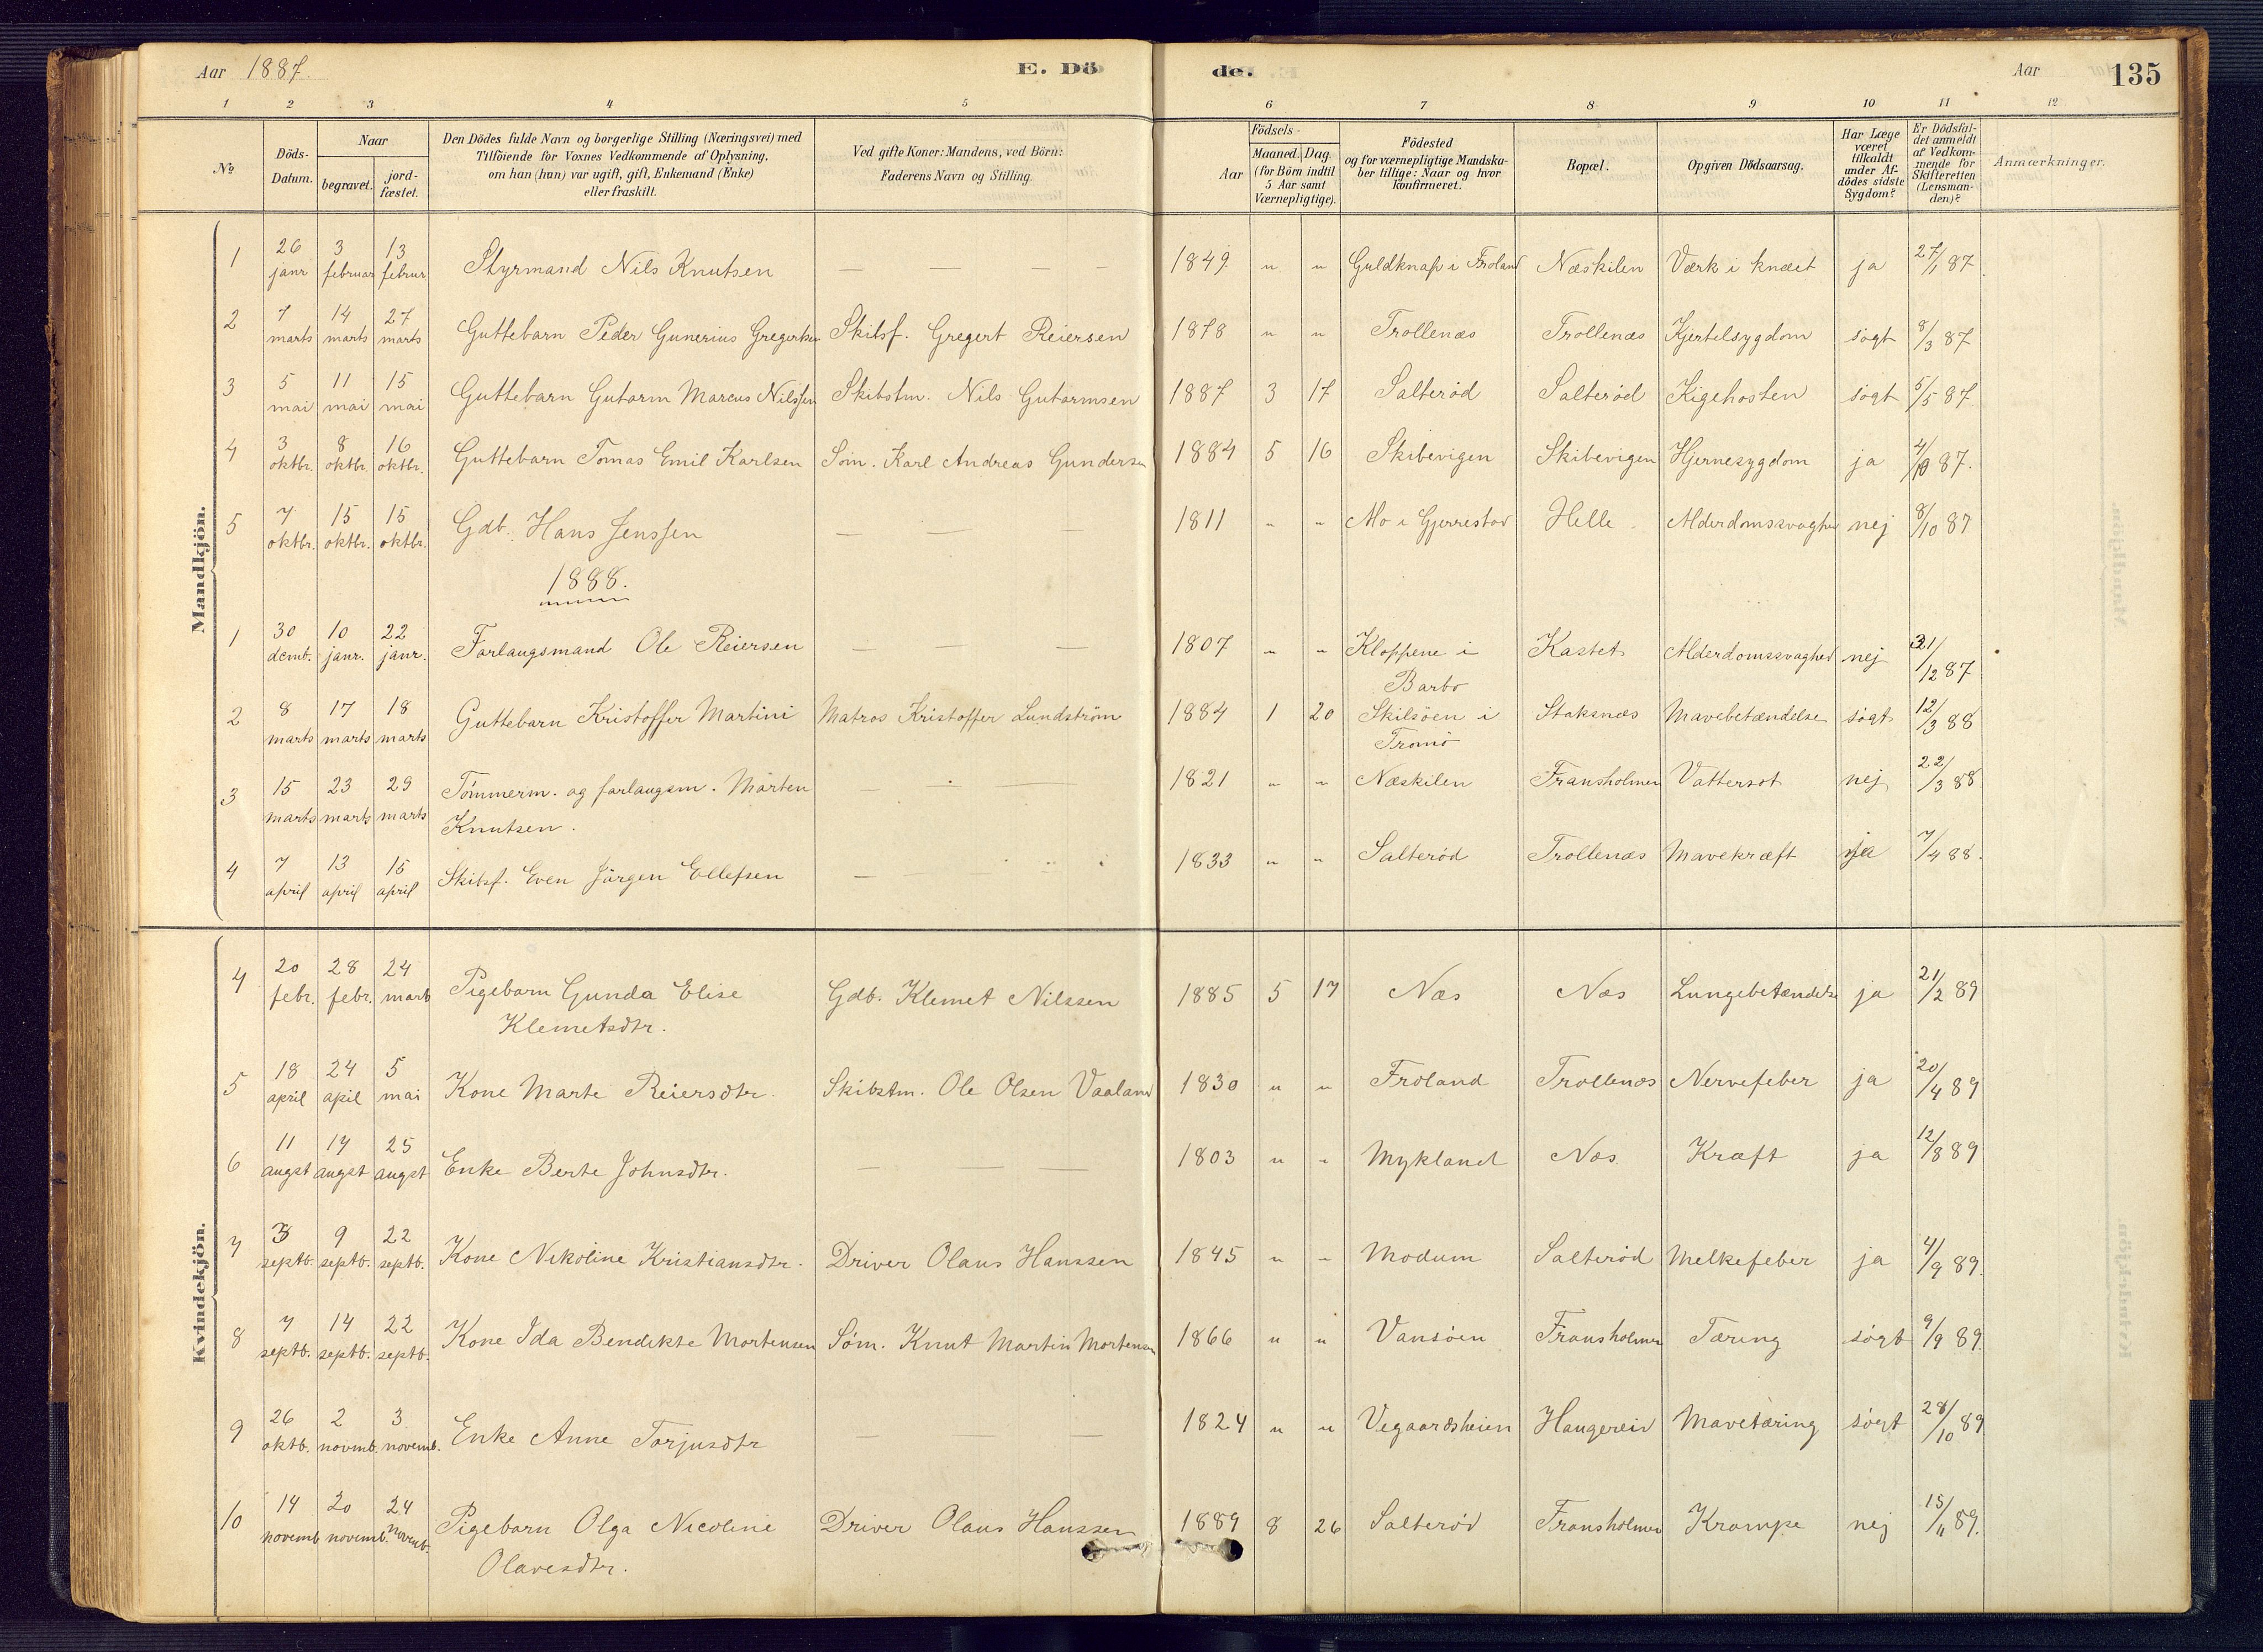 Aar 1887.
E. Döde.
Aar
135
1 2 3 4 5 6 7 8 9 10 11 12
No
Döds-Datum.
Naar
begravet.
jord-fæstet.
Den Dödes fulde Navn og borgerlige Stilling (Næringsvei) med
Tilföiende for Voxnes Vedkommende af Oplysning,
om han (hun) var ugift, gift, Enkemand (Enke)
eller fraskilt.
Ved gifte Koner: Mandens, ved Börn:
Faderens Navn og Stilling.
Födsels-
Aar
Maaned. Dag.
(for Börn indtil
5 Aar samt
Værnepligtige).
Födested
og for værnepligtige Mandska-
ber tillige: Naar og hvor
konfirmeret.
Bopæl.
Opgiven Dödsaarsag.
Har Læge
været
tilkaldt
under Af-
dödes sidste
Sygdom?
Er Dödsfal-
det anmeldt
af Vedkom-
mende for
Skifteretten
(Lensman-
den)?
Anmærkninger.
Mandkjön.
1 26 janr 3 februar 13 februr Styrmand Nils Knutsen — — — — 1849. " " Guldknap i Froland Næskilen Værk i knæet ja 27/1 87
2 7 marts 14 marts 27 marts Guttebarn Peder Gunerius Gregertsen Skibsf. Gregert Reiersen 1878 " " Trollenæs Trollenæs Kjertelsygdom sögt 8/3 87
3 5 mai 11 mai 15 mai Guttebarn Gutorm Marcus Nilssen Skibstm. Nils Gutormsen 1887 3 17 Salteröd Salteröd Kigehosten sögt 5/5 87
4 3 oktbr. 8 oktbr. 16 oktbr. Guttebarn Tomas Emil Karlsen Söm. Karl Andreas Gundersen 1884 5 16 Skibevigen Skibevigen Hjernesygdom ja 4/10 87.
5 7 oktbr. 15 oktbr. 15 oktbr. Gdb. Hans Jenssen — — — 1811 " " Mo i Gjerrestad Helle Alderdomssvaghed nej 8/10 87
1888.
1 30 demb. 10 janr. 22 janr. Forlaugsmand Ole Reiersen — — — 1807 " " Kloppene i Kastet Alderdomssvaghed nej 31/12 87
Barbo
2 8 marts 17 marts 18 marts Guttebarn Kristoffer Martini Matros Kristoffer Lundström 1884 1 20 Skilsöen i Staksnæs Mavebetændelse sögt 12/3 88
Tromö
3 15 marts 23 marts 29 marts Tömmerm. og forlaugsm. Mårten — — 1821 " " Næskilen Fransholmen Vattersot nej 22/3 88
Knutsen.
4 7 april 13 april 15 april Skibsf. Even Jörgen Ellefsen — 1833 " " Salteröd Trollenæs Mavekræft ja 7/4 88.
Kvindekjön.
4 20 febr. 28 febr. 24 marts Pigebarn Gunda Elise Gdb. Klemet Nilssen 1885 5 17 Næs Næs Lungebetændelse ja 21/2 89
Klemetsdtr.
5 18 april 24 april 5 mai Kone Marte Reiersdtr. Skibstm. Ole Olsen Vaaland 1830 " " Froland Trollenæs Nervefeber ja 20/4 89
6 11 augst 17 augst 25 augst Enke Berte Johnsdtr. — — 1803 " " Mykland Næs Kræft ja 12/8 89
7 3 septb. 9 septb. 22 septb. Kone Nikoline Kristiansdtr. Driver Olaus Hanssen 1845 " " Modum Salteröd Melkefeber ja 4/9 89.
8 7 septb. 14 septb. 22 septb. Kone Ida Bendikte Mortensen Söm. Knut Martin Mortensen 1866 " " Vansöen Fransholmen Tæring sögt 9/9 89.
9 26 oktb. 2 novmb. 3 novemb. Enke Anne Torjusdtr — — 1824 " " Vegaardsheien Haugereid Mavetæring sögt 28/10 89
10 14 novemb 20 novemb. 24 novmb. Pigebarn Olga Nicoline Driver Olaus Hanssen 1889 8 26 Salteröd Fransholmen Krampe nej 15/11 89.
Olavesdtr.